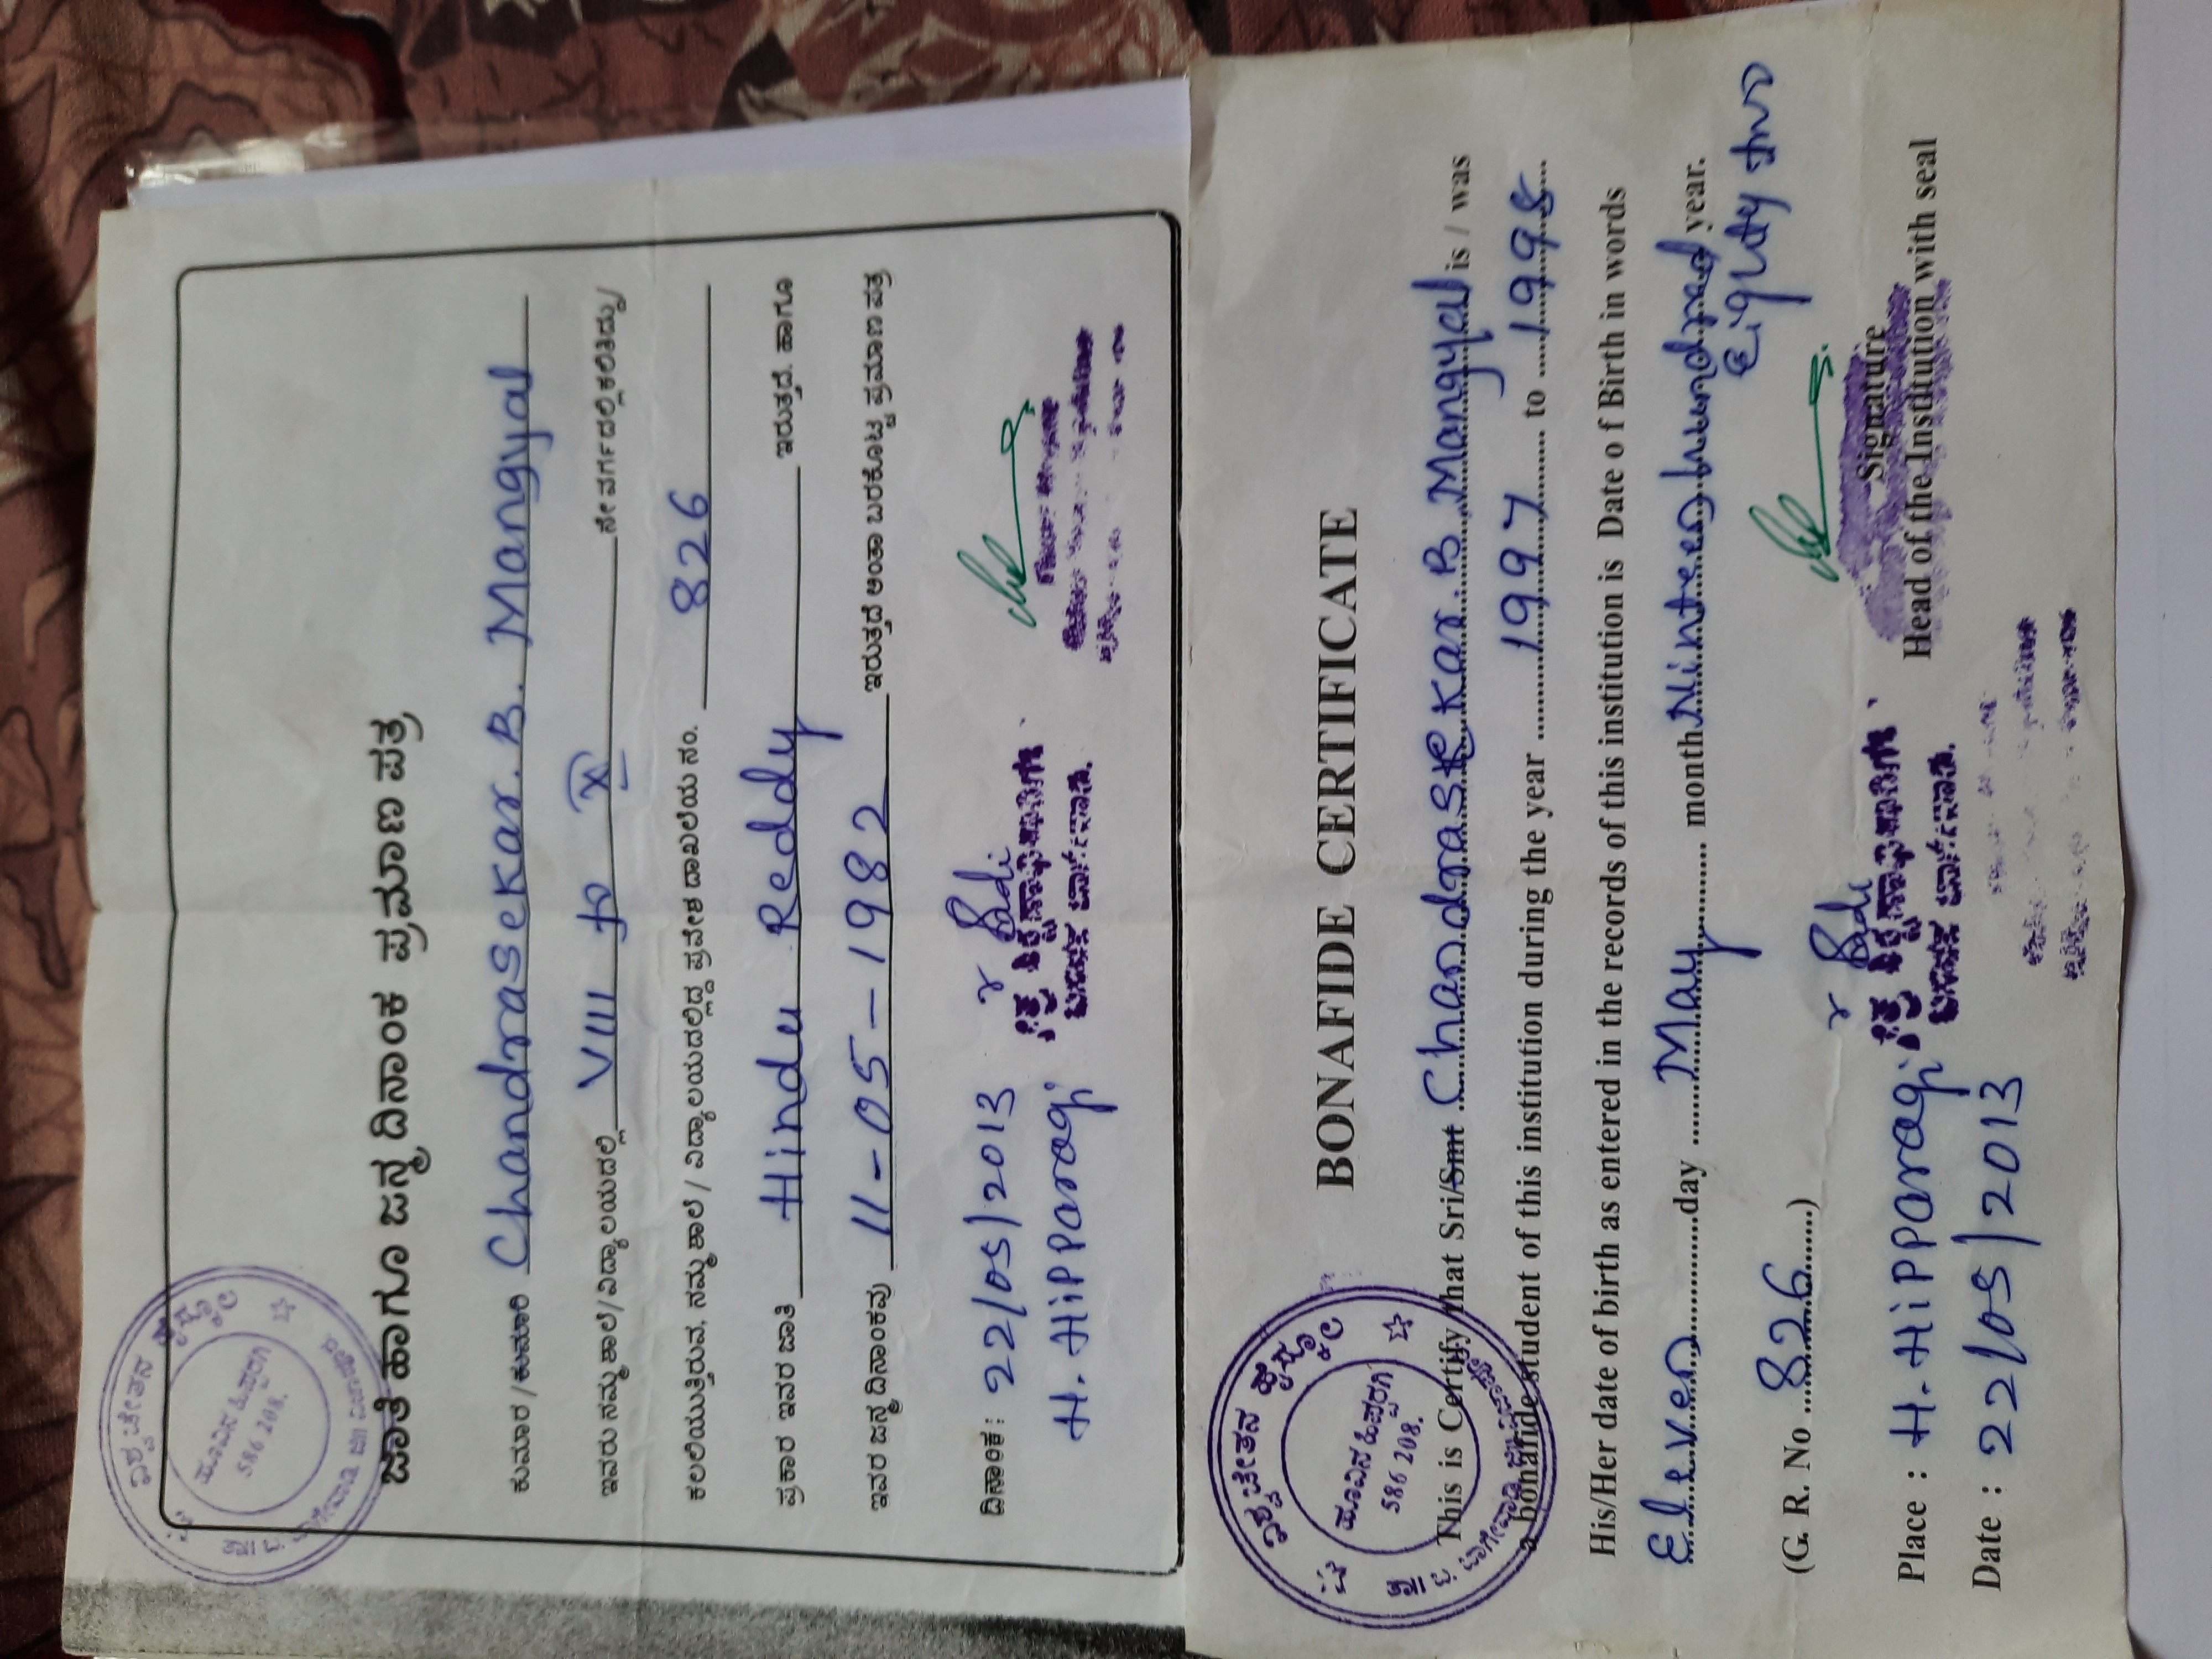 ವಿಶ್ವ ಚೇತನ ಹೈಸ್ಕೂಲ
ಹೂವಿನ ಹಿಪ್ಪರಗಿ
586 208.
ಜಾತಿ ಹಾಗೂ ಜನ್ಮ ದಿನಾಂಕ ಪ್ರಮಾಣ ಪತ್ರ
ಕುಮಾರ / ಕುಮಾರಿ Chandrasekar. B. Mangyal
ಇವರು ನಮ್ಮ ಶಾಲೆ/ವಿದ್ಯಾಲಯದಲ್ಲಿ VIII to X ನೇ ವರ್ಗದಲ್ಲಿ ಕಲಿತಿದ್ದು/
ಕಲಲಿಯುತ್ತಿರುವ, ನಮ್ಮ ಶಾಲೆ / ವಿದ್ಯಾಲಯದಲ್ಲಿದ್ದ ಪ್ರವೇಶ ದಾಖಲೆಯ ನಂ. 826
ಪ್ರಕಾರ ಇವರ ಜಾತಿ Hindu Reddy ಇರುತ್ತದೆ. ಹಾಗೂ
ಇವರ ಜನ್ಮ ದಿನಾಂಕವು 11-05-1982 ಇರುತ್ತದೆ ಅಂತಾ ಬರಕೊಟ್ಟ ಪ್ರಮಾಣ ಪತ್ರ
ದಿನಾಂಕ : 22/05/2013
H. Hipparagi
ವಿಶ್ವ ಚೇತನ ಹೈಸ್ಕೂಲ
ಹೂವಿನ ಹಿಪ್ಪರಗಿ
586 208.
BONAFIDE CERTIFICATE
This is Certify that Sri/Smt Chandrasekar. B. Mangyal is / was
a bonafide student of this institution during the year 1997 to 1998
His/Her date of birth as entered in the records of this institution is Date o f Birth in words
Elven day May month Ninteen hundred year.
Eighty two
(G. R. No 826)
Signature
Place : H. Hipparagi Head of the Institution with seal
Date : 22/05/2013